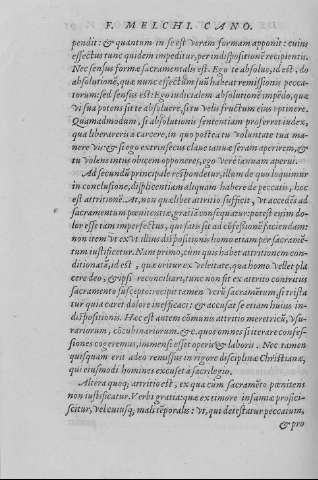 F. MELCHI. CANO.
pendit: & quantum in se est veram formam apponit: cuius
effectus tunc quidem impeditur, per indispositionē recipientis.
Nec sensus formæ sacramentalis est. Ego te absoluo, id est, do
absolutionē, quæ nunc effectūm suū habeat remissionis pecca-
torum: sed sensus est: Ego iudicialem absolutionē impēdo, quæ
vi sua potens sit te absoluere, si tu velis fructum eius pptinere.
Quamadmodum, si absolutionis sententiam proferret iudex,
qua liberareris a carcere, in quo posita tu voluntate tua ma-
nere vis, & si ego extrinsecus claue ianuā seram aperirem, &
tu volens intus obicem opponeres, ego vere ianuam aperui.
Ad secundū principale respondetur, illum de quo loquimur
in conclusione, displicentiam aliquam habere de peccatis, hoc
est attritionē. At, non qualiber attritio sufficit, vt accedēs ad
sacramentum pœnitentiæ, gratiā consequatur: potest enim do-
lor esse tam imperfectus, qui satis sit ad cōfessionē faciendam:
non item vt ex vi illius dispositionis homo etiam per sacramē-
tum iustificetur. Nam primo, cum quis habet attritionem con-
ditionatā, id est, quæ oritur ex veleitate, qua homo vellet pla
cere deo, & ipsi reconciliari, tunc non fit ex attrito contritus
sacramento suscepto: recipit tamen verū sacramētum, si trista
tur quia caret dolore inefficaci: & accusat se etiam huius in-
dispositionis. Hoc est autem cōmunis attritio meretricū, vsu-
rariorum, cōcubinariorum. & c. quos omnes si iterare confes-
siones cogeremus, immensi esset operis & laboris. Nec tamen
quisquam erit adeo remissus in rigore disciplinæ Christianæ,
qui eiusmodi homines excuset a sacrilegio.
Altera quoq; attritio est, ex qua cum sacramēto pœnitens
non iustificatur. Verbi gratia: quæ ex timore infamiæ profici-
scitur, vel cuiusq; mali tēporalis: vt, qui detestatur peccatum,
& pro